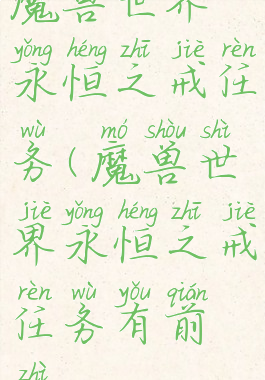 魔兽世界
yǒng héng zhī jiè rèn
永恒之戒任
wù mó shòu shì
务(魔兽世
jiè yǒng héng zhī jiè
界永恒之戒
rèn wù yǒu qián
任务有前
zhì